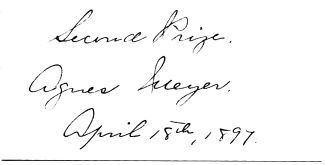 Second Prize.
Agnes Meyer.
April 18th, 1897.